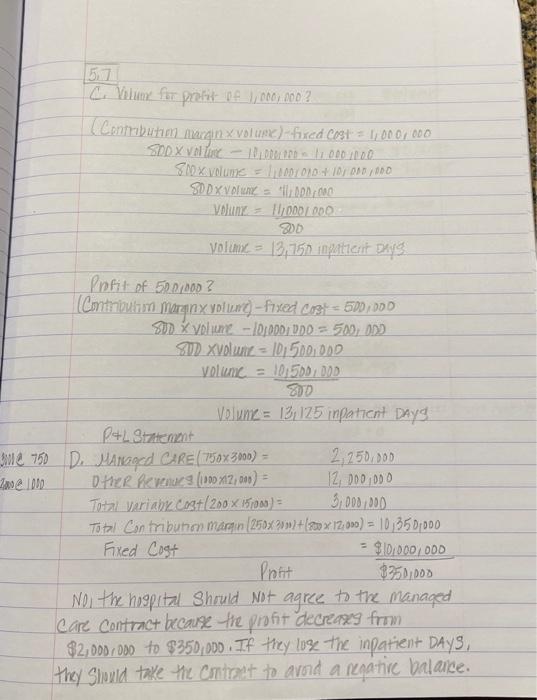 5.7
C. Volume for profit of 1,000,000?
(Contribution margin x volume) - fixed cost = 1,000,000
800 x volume - 10,000,000 = 1,000,000
800 x volume = 1,000,000 + 10,000,000
800 x volume = 11,000,000
Volume = 11,000,000
800
Volume = 13,750 inpatient DAYS
Profit of 500,000?
(Contribution margin x volume) - fixed cost = 500,000
800 x volume - 10,000,000 = 500,000
800 x volume = 10,500,000
volume = 10,500,000
800
Volume = 13,125 inpatient DAYS
P+L Statement
3000@ 750 D. MANaged CARE (750x3000) = 2,250,000
@ 1000 OtheR Revenues (1000x12,000) = 12,000,000
Total variable cost (200 x 15,000) = 3,000,000
Total Contribution margin (250x3000)+(800x12,000) = 10,350,000
Fixed Cost = $10,000,000
Profit $350,000
NO, the hospital should Not agree to the managed
care contract because the profit decreases from
$2,000,000 to $350,000. If they lose the inpatient DAYS,
they should take the contract to avoid a negative balance.